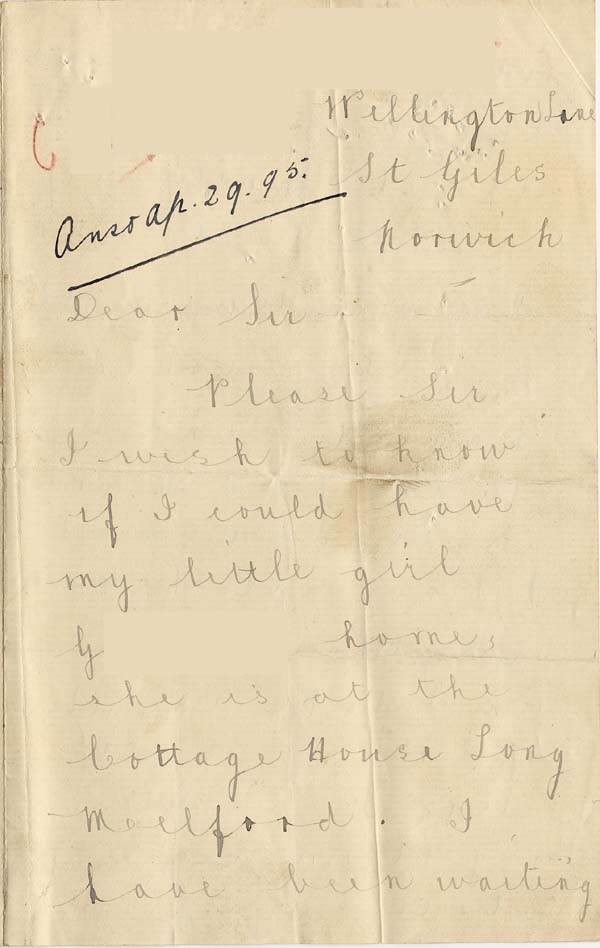 Wellington Lane
St Giles
Ansd Ap. 29. 95.
Norwich
Dear Sir.
Please Sir
I wish to know
if I could have
my little girl
G home,
she is at the
Cottage House Long
Meelford. I
have been waiting